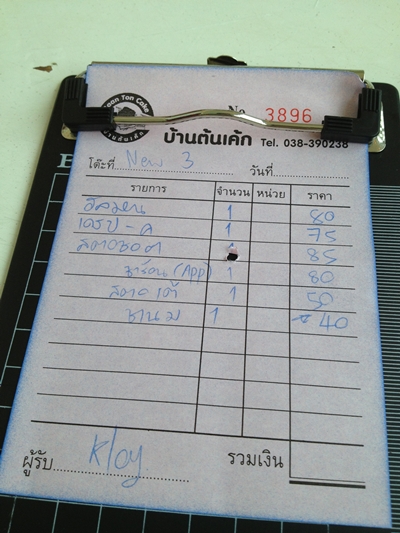 Baan Ton Cake
บ้านต้นเค้ก
No. 3896
บ้านต้นเค้ก Tel. 038-390238
โต๊ะที่ New 3 วันที่
รายการ จำนวน หน่วย ราคา
1 80
เครป - A 1 75
85
ชาร้อน (App) 1 80
1 50
ชานม 1 40
ผู้รับ Kloy รวมเงิน